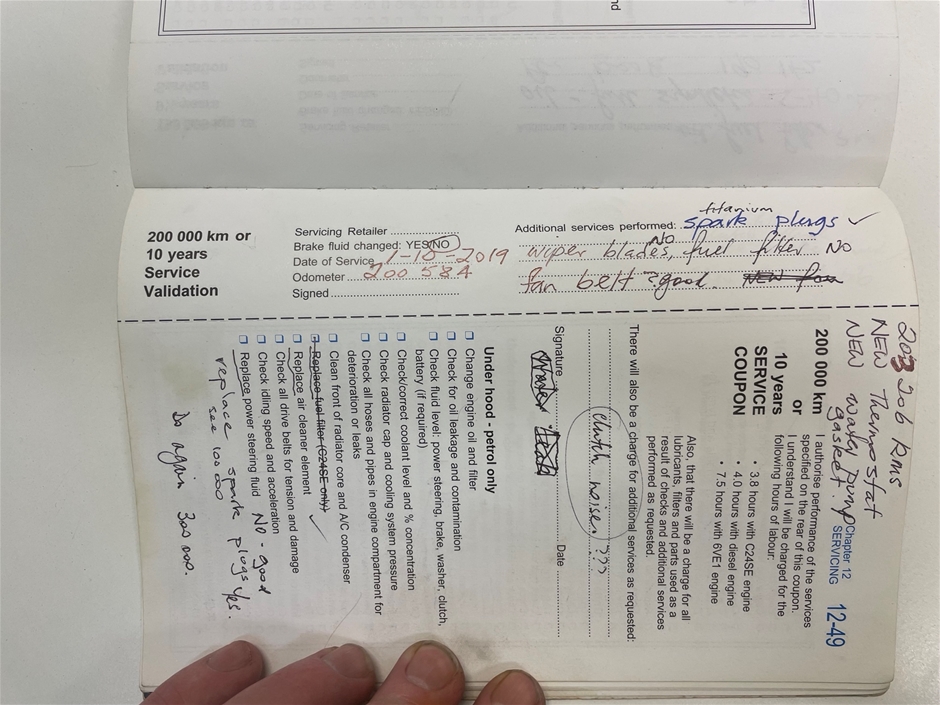 200 000 km or
10 years
Service
Validation
Servicing Retailer
Brake fluid changed: YES/NO
Date of Service 1-10-2019
Odometer 200 584
Signed
titanium
Additional services performed: spark plugs ✓
NO
wiper blades, fuel filter NO
fan belt ? good.
Chapter 12
SERVICING 12-49
203 206 kms
NEW Thermostat
NEW water pump
gasket.
200 000 km
or
10 years
SERVICE
COUPON
I authorise performance of the services
specified on the rear of this coupon.
I understand I will be charged for the
following hours of labour:
• 3.8 hours with C24SE engine
• 4.0 hours with diesel engine
• 7.5 hours with 6VE1 engine
Also, that there will be a charge for all
lubricants, filters and parts used as a
result of checks and additional services
performed as requested.
There will also be a charge for additional services as requested:
Clutch noise. ???
Signature Date
Under hood - petrol only
Change engine oil and filter
Check for oil leakage and contamination
Check fluid level: power steering, brake, washer, clutch,
battery (if required)
Check/correct coolant level and % concentration
Check radiator cap and cooling system pressure
Check all hoses and pipes in engine compartment for
deterioration or leaks
Clean front of radiator core and A/C condenser
Replace fuel filter (C24SE only) ✓
Replace air cleaner element
Check all drive belts for tension and damage
Check idling speed and acceleration
Replace power steering fluid No - good
replace spark plugs yes.
see 100 000
Do again 300 000.